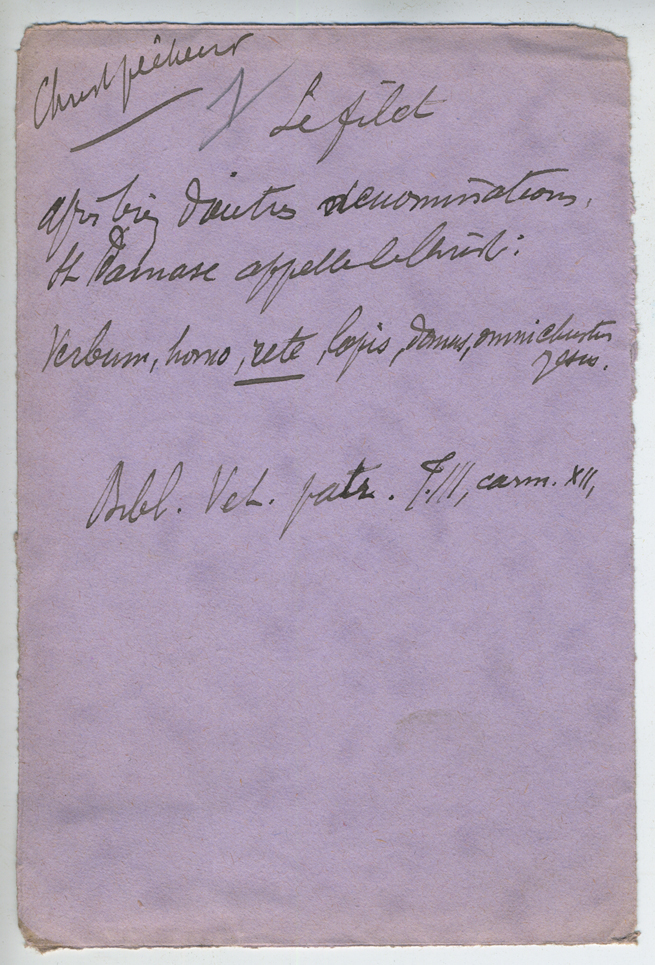 Christ pêcheur
Le filet
après bien d'autres dénominations,
St Damase appelle le Christ :
Verbum, homo, rete, lapis, domus, omnia Christus
Jesus.
Bibl. Vet. patr. T. III, carm. XII,